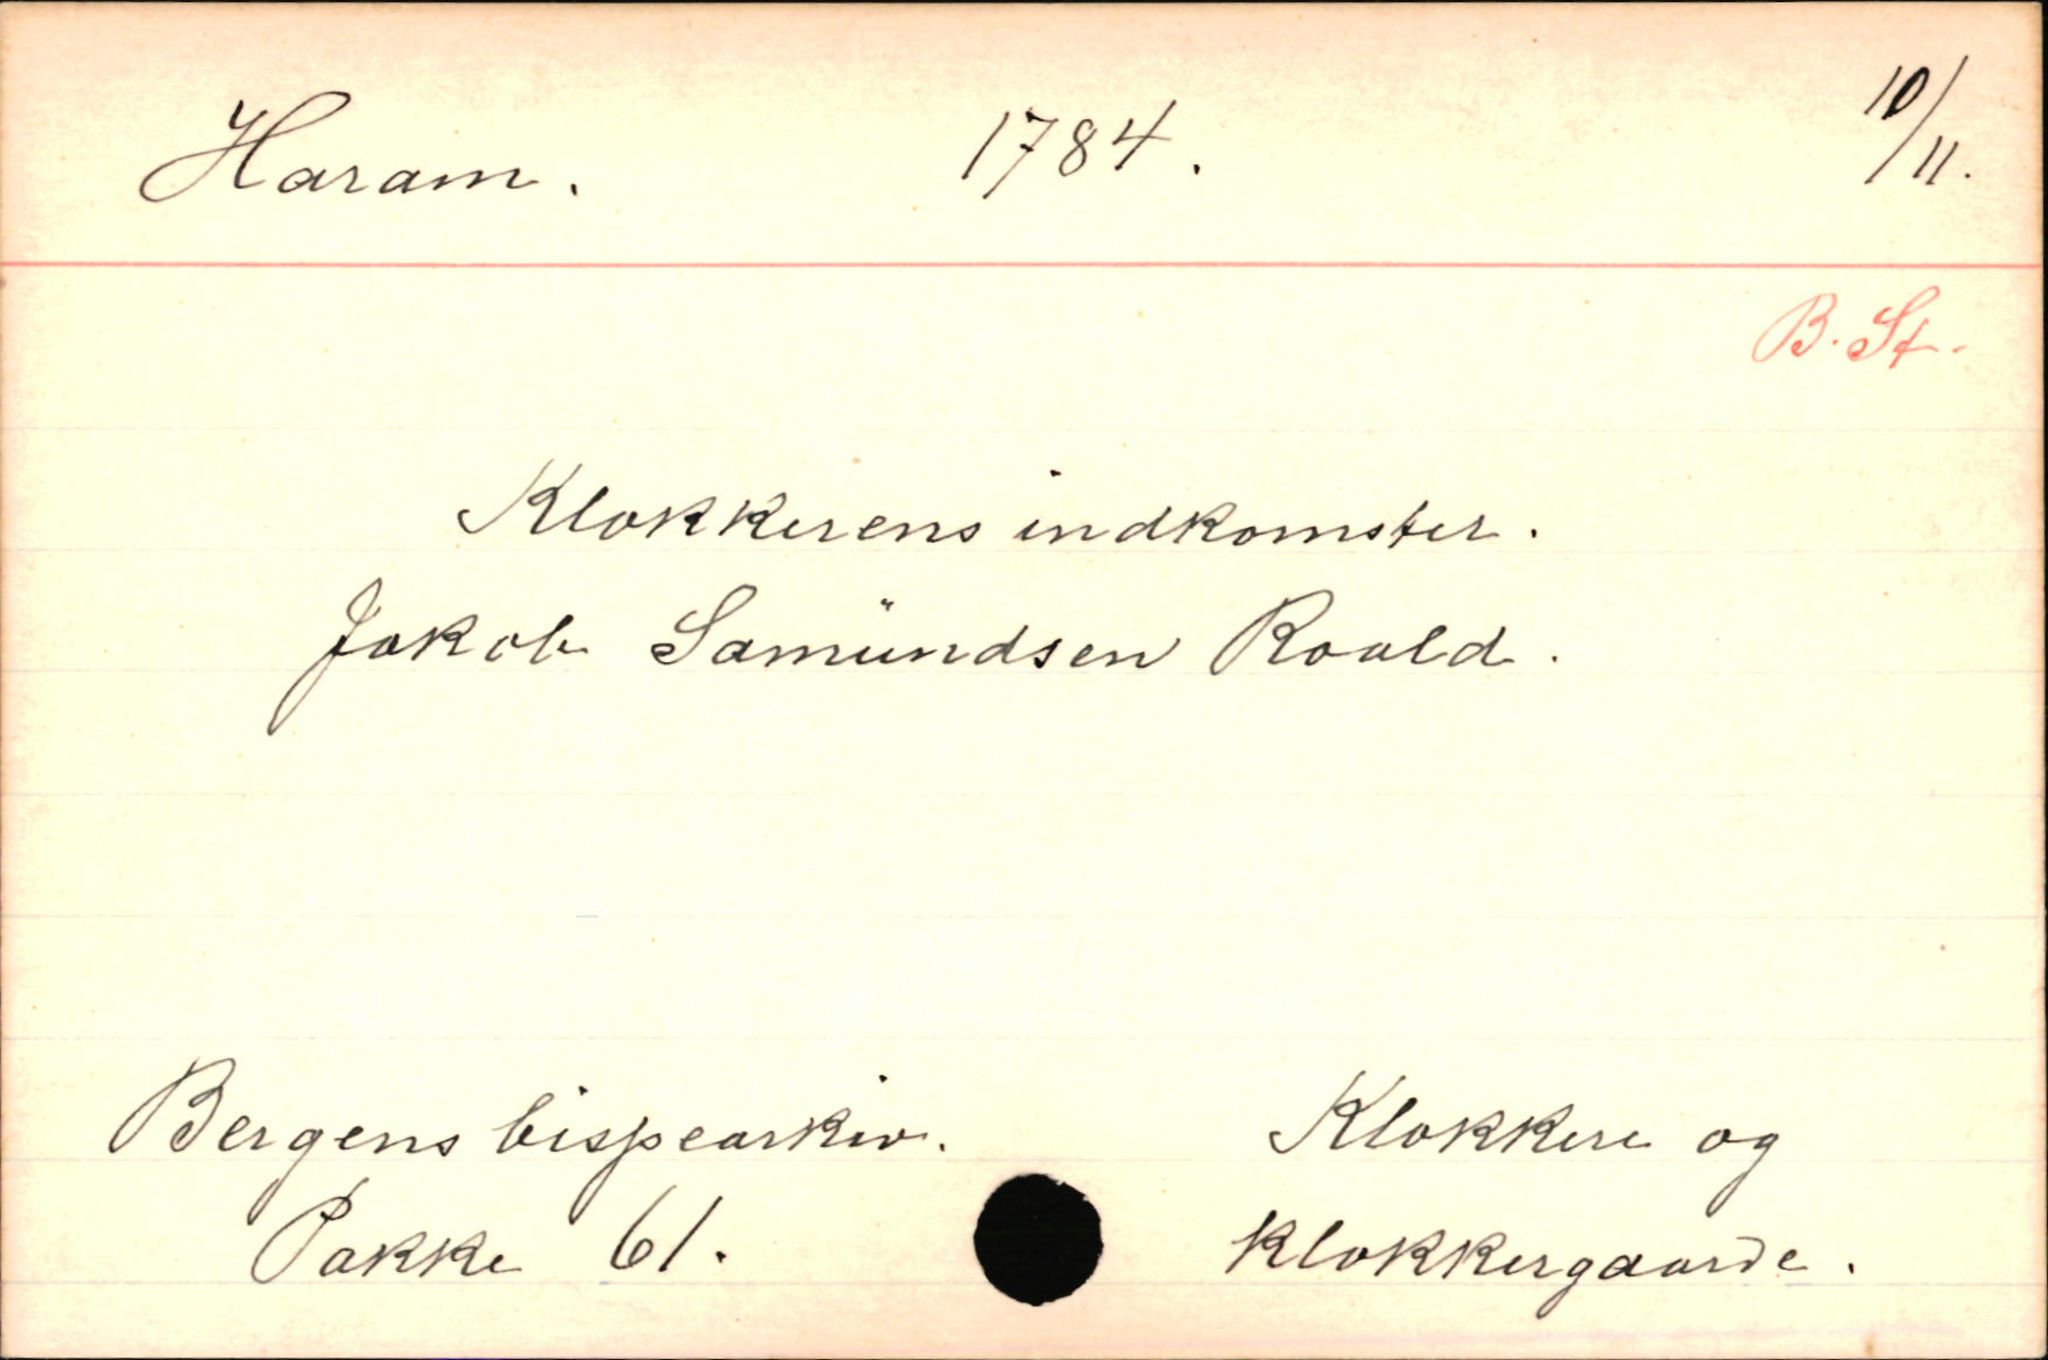 Haram. 1784. 10/11.
B. St.
Klokkerens indkomster.
Jakob Samündsen Roald.
Bergens bispearkiv. Klokkere og
Pakke 61. klokkergaarde.